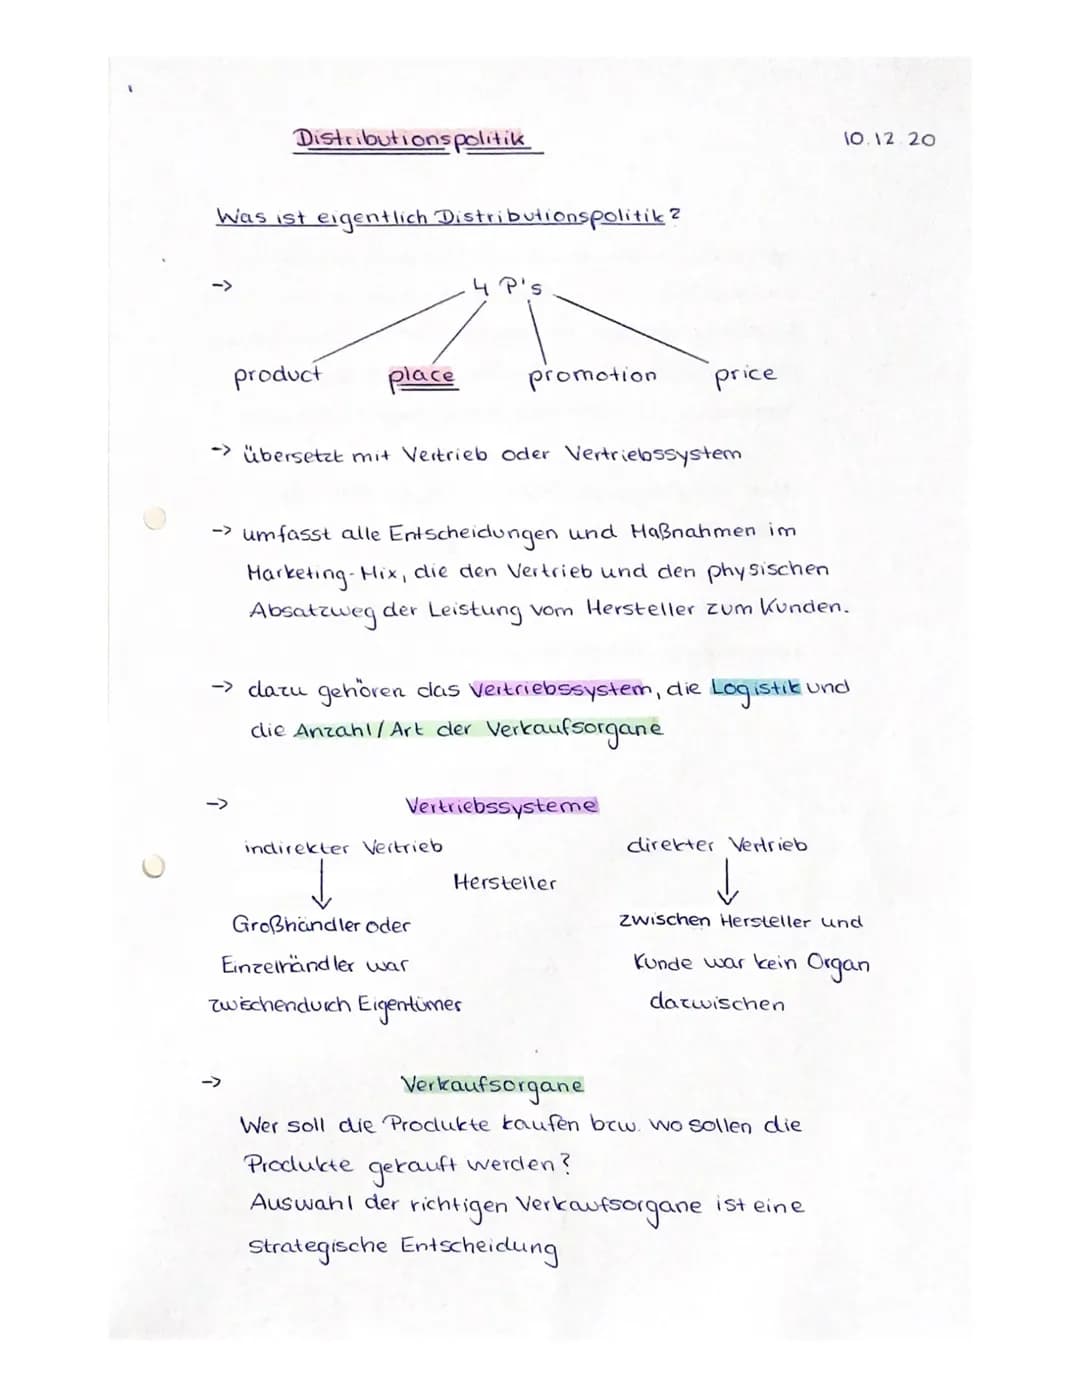 Distributionspolitik 10.12.20
Was ist eigentlich Distributionspolitik?
-> 4 P's
product place promotion price
-> übersetzt mit Vertrieb oder Vertriebssystem
-> umfasst alle Entscheidungen und Maßnahmen im
Marketing-Mix, die den Vertrieb und den physischen
Absatzweg der Leistung vom Hersteller zum Kunden.
-> dazu gehören das Vertriebssystem, die Logistik und
die Anzahl/Art der Verkaufsorgane
-> Vertriebssysteme
indirekter Vertrieb direkter Vertrieb
Hersteller
Großhändler oder zwischen Hersteller und
Einzelhändler war Kunde war kein Organ
zwischendurch Eigentümer dazwischen
-> Verkaufsorgane
Wer soll die Produkte kaufen bzw. wo sollen die
Produkte gekauft werden?
Auswahl der richtigen Verkaufsorgane ist eine
Strategische Entscheidung